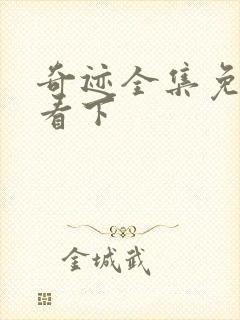 奇迹全集免
看下
金城武